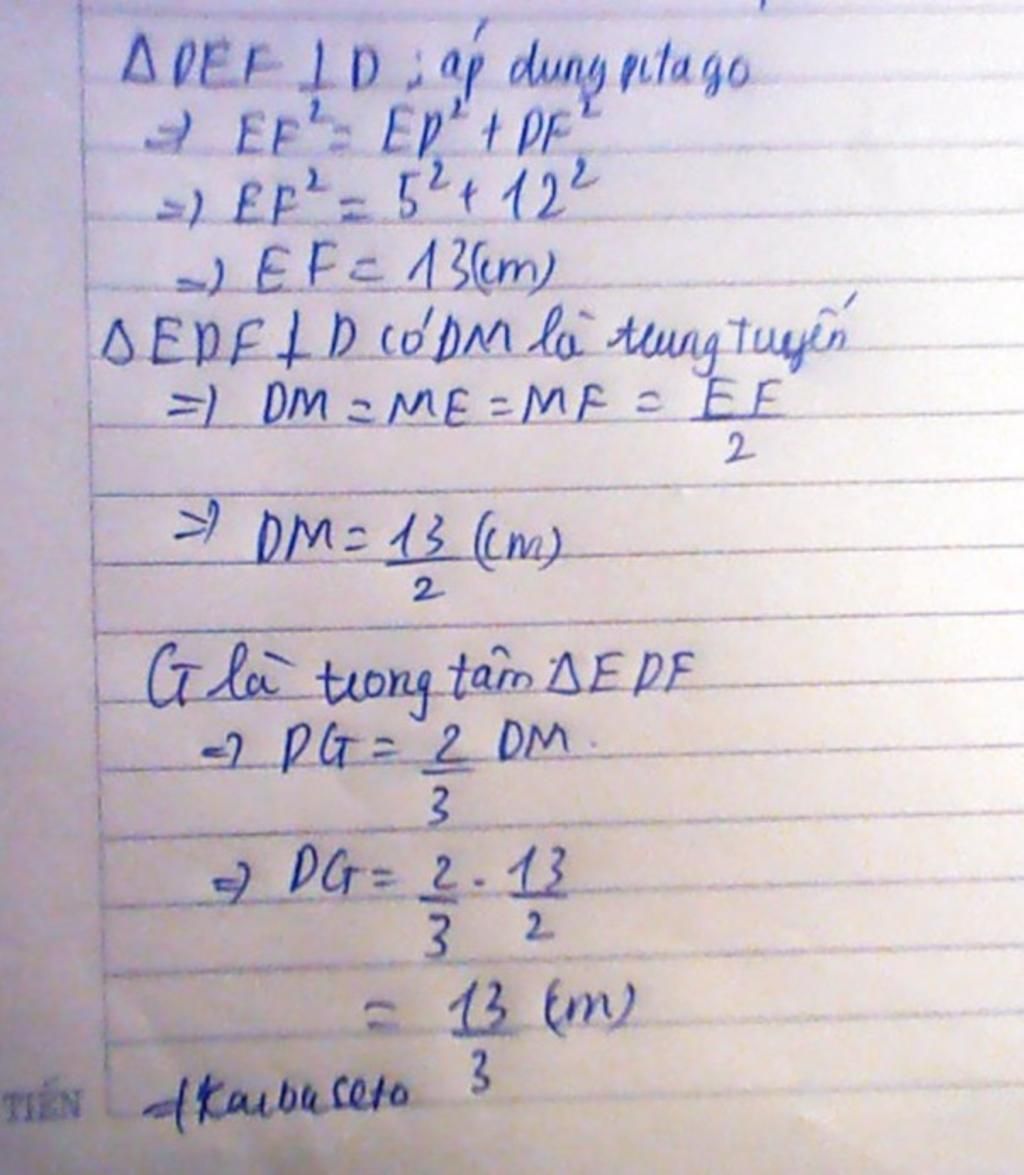 Δ DEF ⊥ D ; áp dung pitago
=> EF² = ED² + DF²
=> EF² = 5² + 12²
=> EF = 13 (cm)
Δ EDF ⊥ D có DM là trung tuyến
=> DM = ME = MF = EF/2
=> DM = 13/2 (cm)
G là trong tâm Δ EDF
=> DG = 2/3 DM.
=> DG = 2/3 . 13/2
= 13/3 (cm)
TIẾN
Kaibaseto